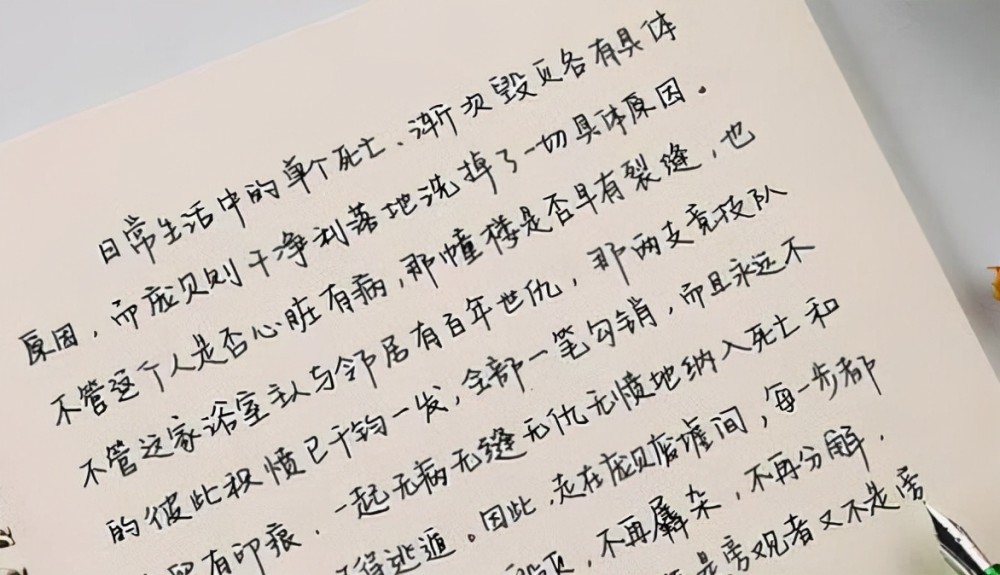 日常生活中的单个死亡、渐次毁灭各有具体
原因，而庞贝则干净利落地洗掉了一切具体原因．
不管这个人是否心脏有病，那幢楼是否早有裂缝，也
不管这家浴室主人与邻居有百年世仇，那两支竞技队
的彼此积愤已千钧一发，全部一笔勾销，而且永远不
有印痕．一起无病无缝无仇无愤地纳入死亡和
得逃遁。因此，走在庞贝废墟间，每一步都
不再羼杂，不再分解．
是旁观者又不是旁